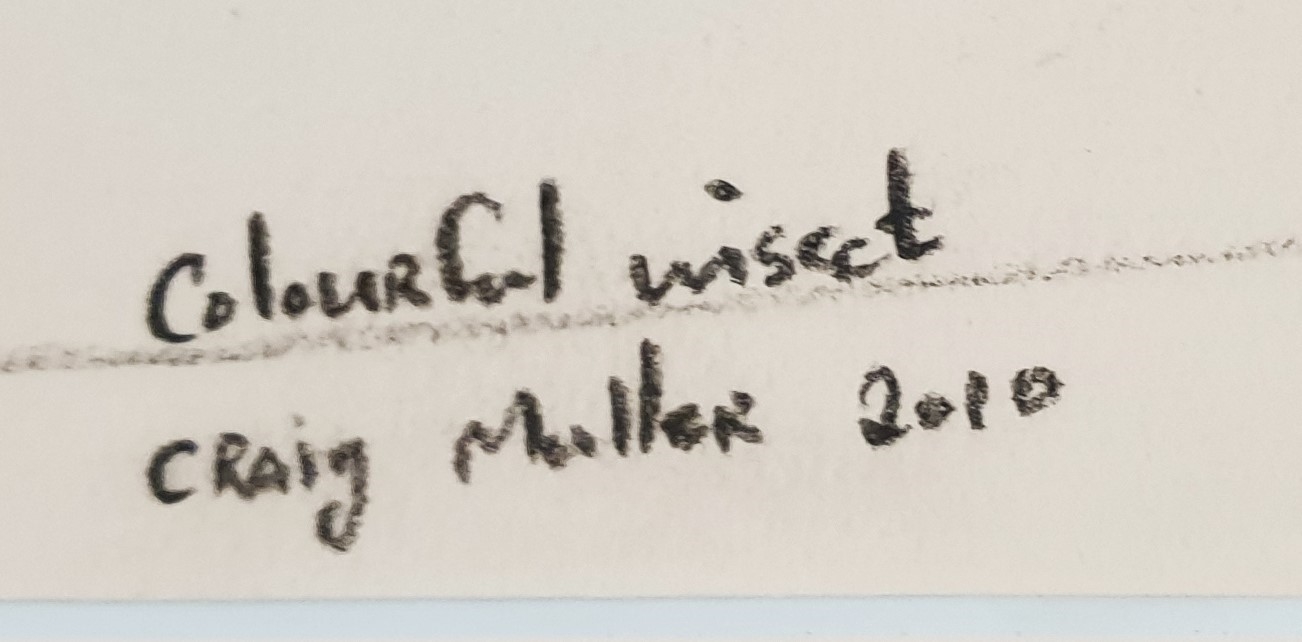 Colourful insect
CRAig Muller 2010